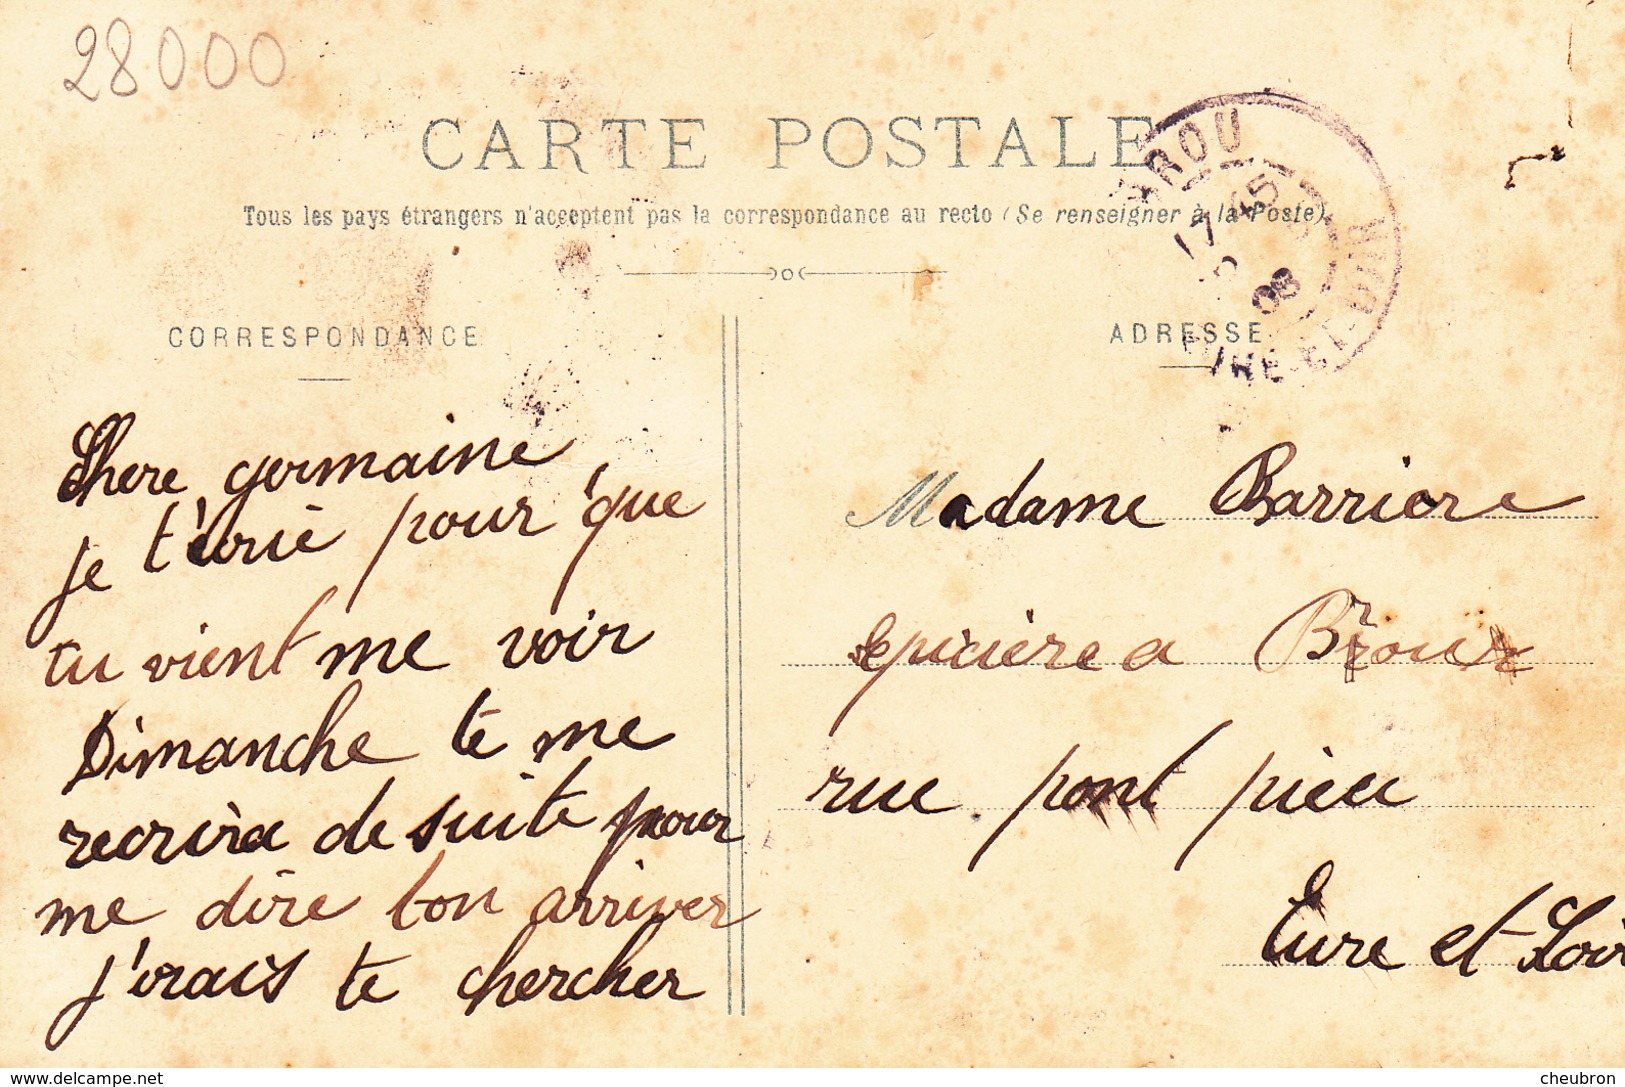 28000
CARTE POSTALE
Tous les pays étrangers n'acceptent pas la correspondance au recto (Se renseigner à la Poste)
BROU
17 45
5
08
EURE-ET-LOIR
CORRESPONDANCE
Chere germaine
je t'ecrie pour que
tu vient me voir
Dimanche te me
recrira de suite pour
me dire ton arriver
j'irais te chercher
ADRESSE
Madame Barriere
epiciere a Brou
rue pont pieu
Eure et Loir
www.delcampe.net
cheubron